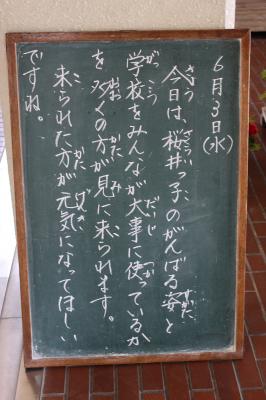 6月3日(水)
今日は、桜井っ子のがんばる姿と
学校をみんなが大事に使っているか
を多くの方が見に来られます。
来られた方が元気になってほしい
ですね。